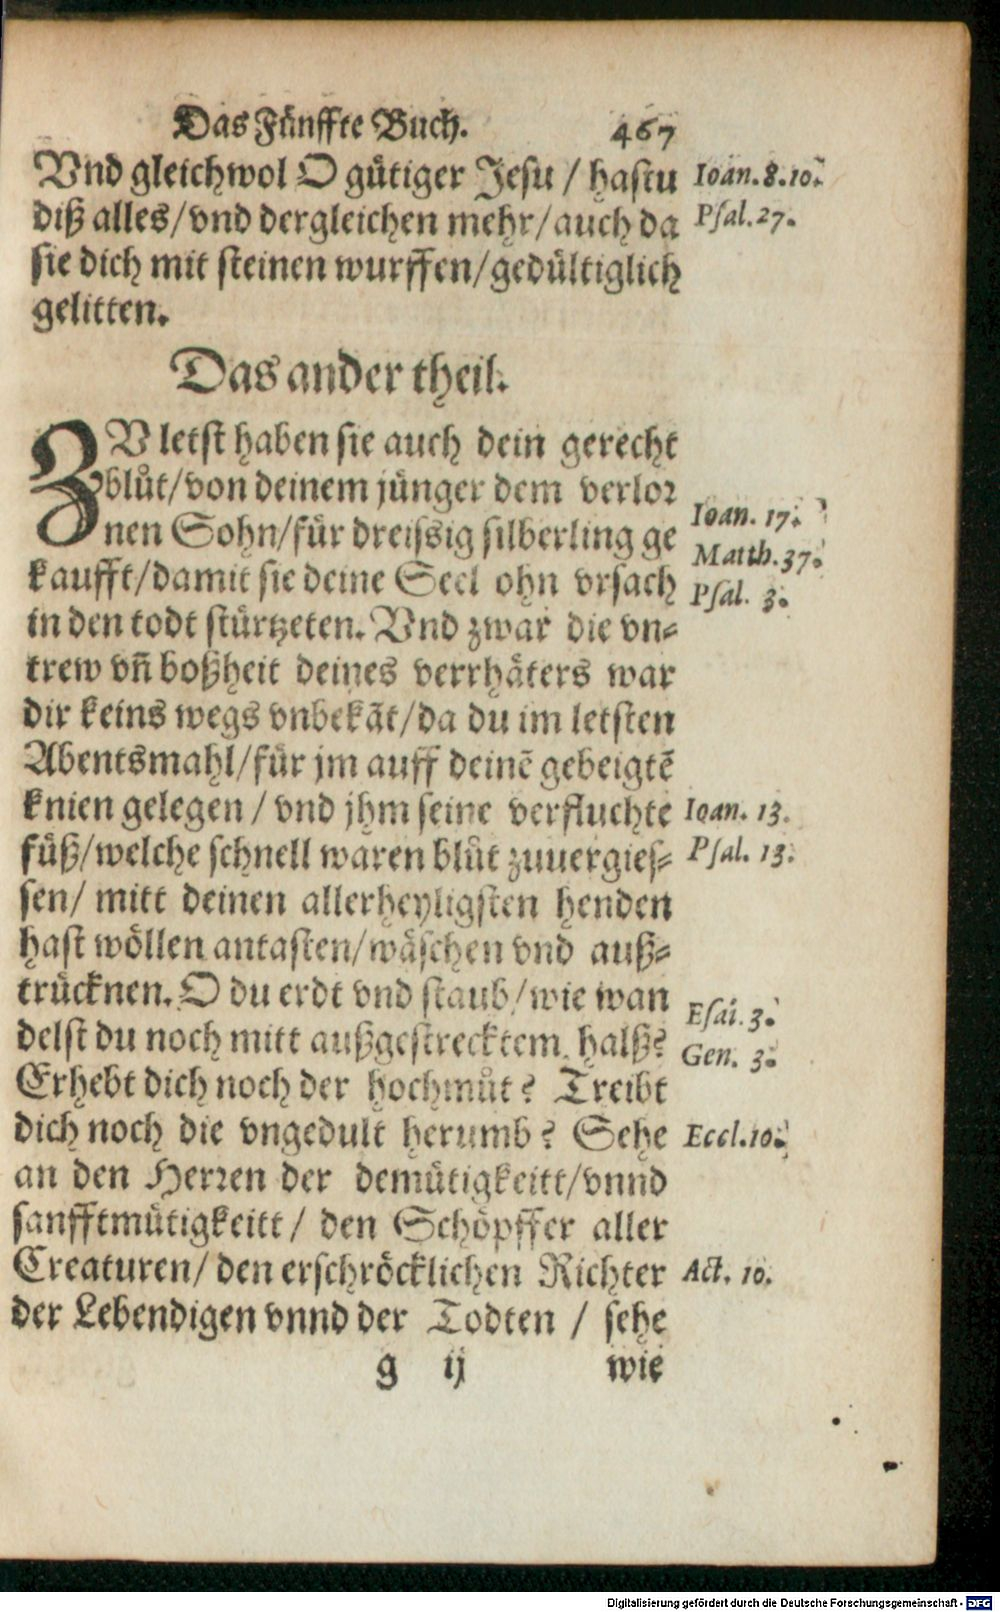 Das Fünffte Buch. 467
Vnd gleichwol O gütiger Jesu / hastu
diß alles/vnd dergleichen mehr/auch da
sie dich mit steinen wurffen/gedültiglich
gelitten.
Ioan.8.10.
Psal.27.
Das ander theil.
ZV letst haben sie auch dein gerecht
blůt/von deinem jünger dem verlor
nen Sohn/für dreissig silberling ge
kaufft/damit sie deine Seel ohn vrsach
in den todt stürtzeten. Vnd zwar die vn-
trew vñ boßheit deines verrhäters war
dir keins wegs vnbekãt/da du im letsten
Abentsmahl/für jm auff deinẽ gebeigtẽ
knien gelegen / vnd jhm seine verfluchte
füß/welche schnell waren blůt zuuergies-
sen/ mitt deinen allerheyligsten henden
hast wöllen antasten/wäschen vnd auß-
trücknen. O du erdt vnd staub/wie wan
delst du noch mitt außgestrecktem halß?
Erhebt dich noch der hochmůt? Treibt
dich noch die vngedult herumb? Sehe
an den Herren der demütigkeitt/vnnd
sanfftmütigkeitt/ den Schöpffer aller
Creaturen/ den erschröcklichen Richter
der Lebendigen vnnd der Todten / sehe
Ioan. 17.
Matth.37.
Psal. 3.
Ioan. 13.
Psal. 13.
Esai.3.
Gen. 3.
Eccl.10.
Act. 10.
g ij wie
Digitalisierung gefördert durch die Deutsche Forschungsgemeinschaft - DFG